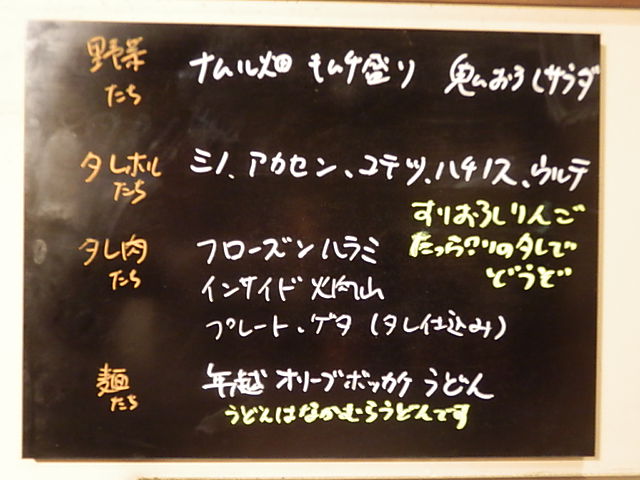 野菜たち
ナムル畑 キムチ盛り 鬼おろしサラダ
タレホルたち
ミノ、アカセン、コテツ、ハチノス、ウルテ
すりおろしりんご
たっぷりのタレで
どうぞ
タレ肉たち
フローズンハラミ
インサイド 火肉山
プレート、ゲタ(タレ仕込み)
麺たち
年越 オリーブボッカケ うどん
うどんはなかむらうどんです